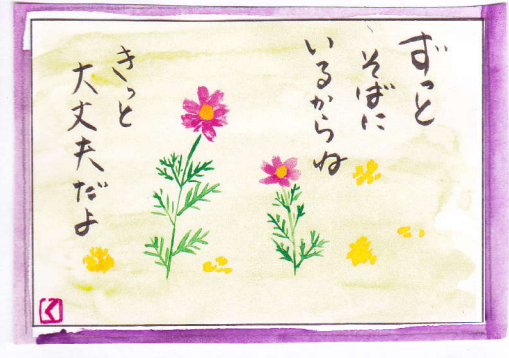 ずっと
そばに
いるからね
きっと
大丈夫だよ
く